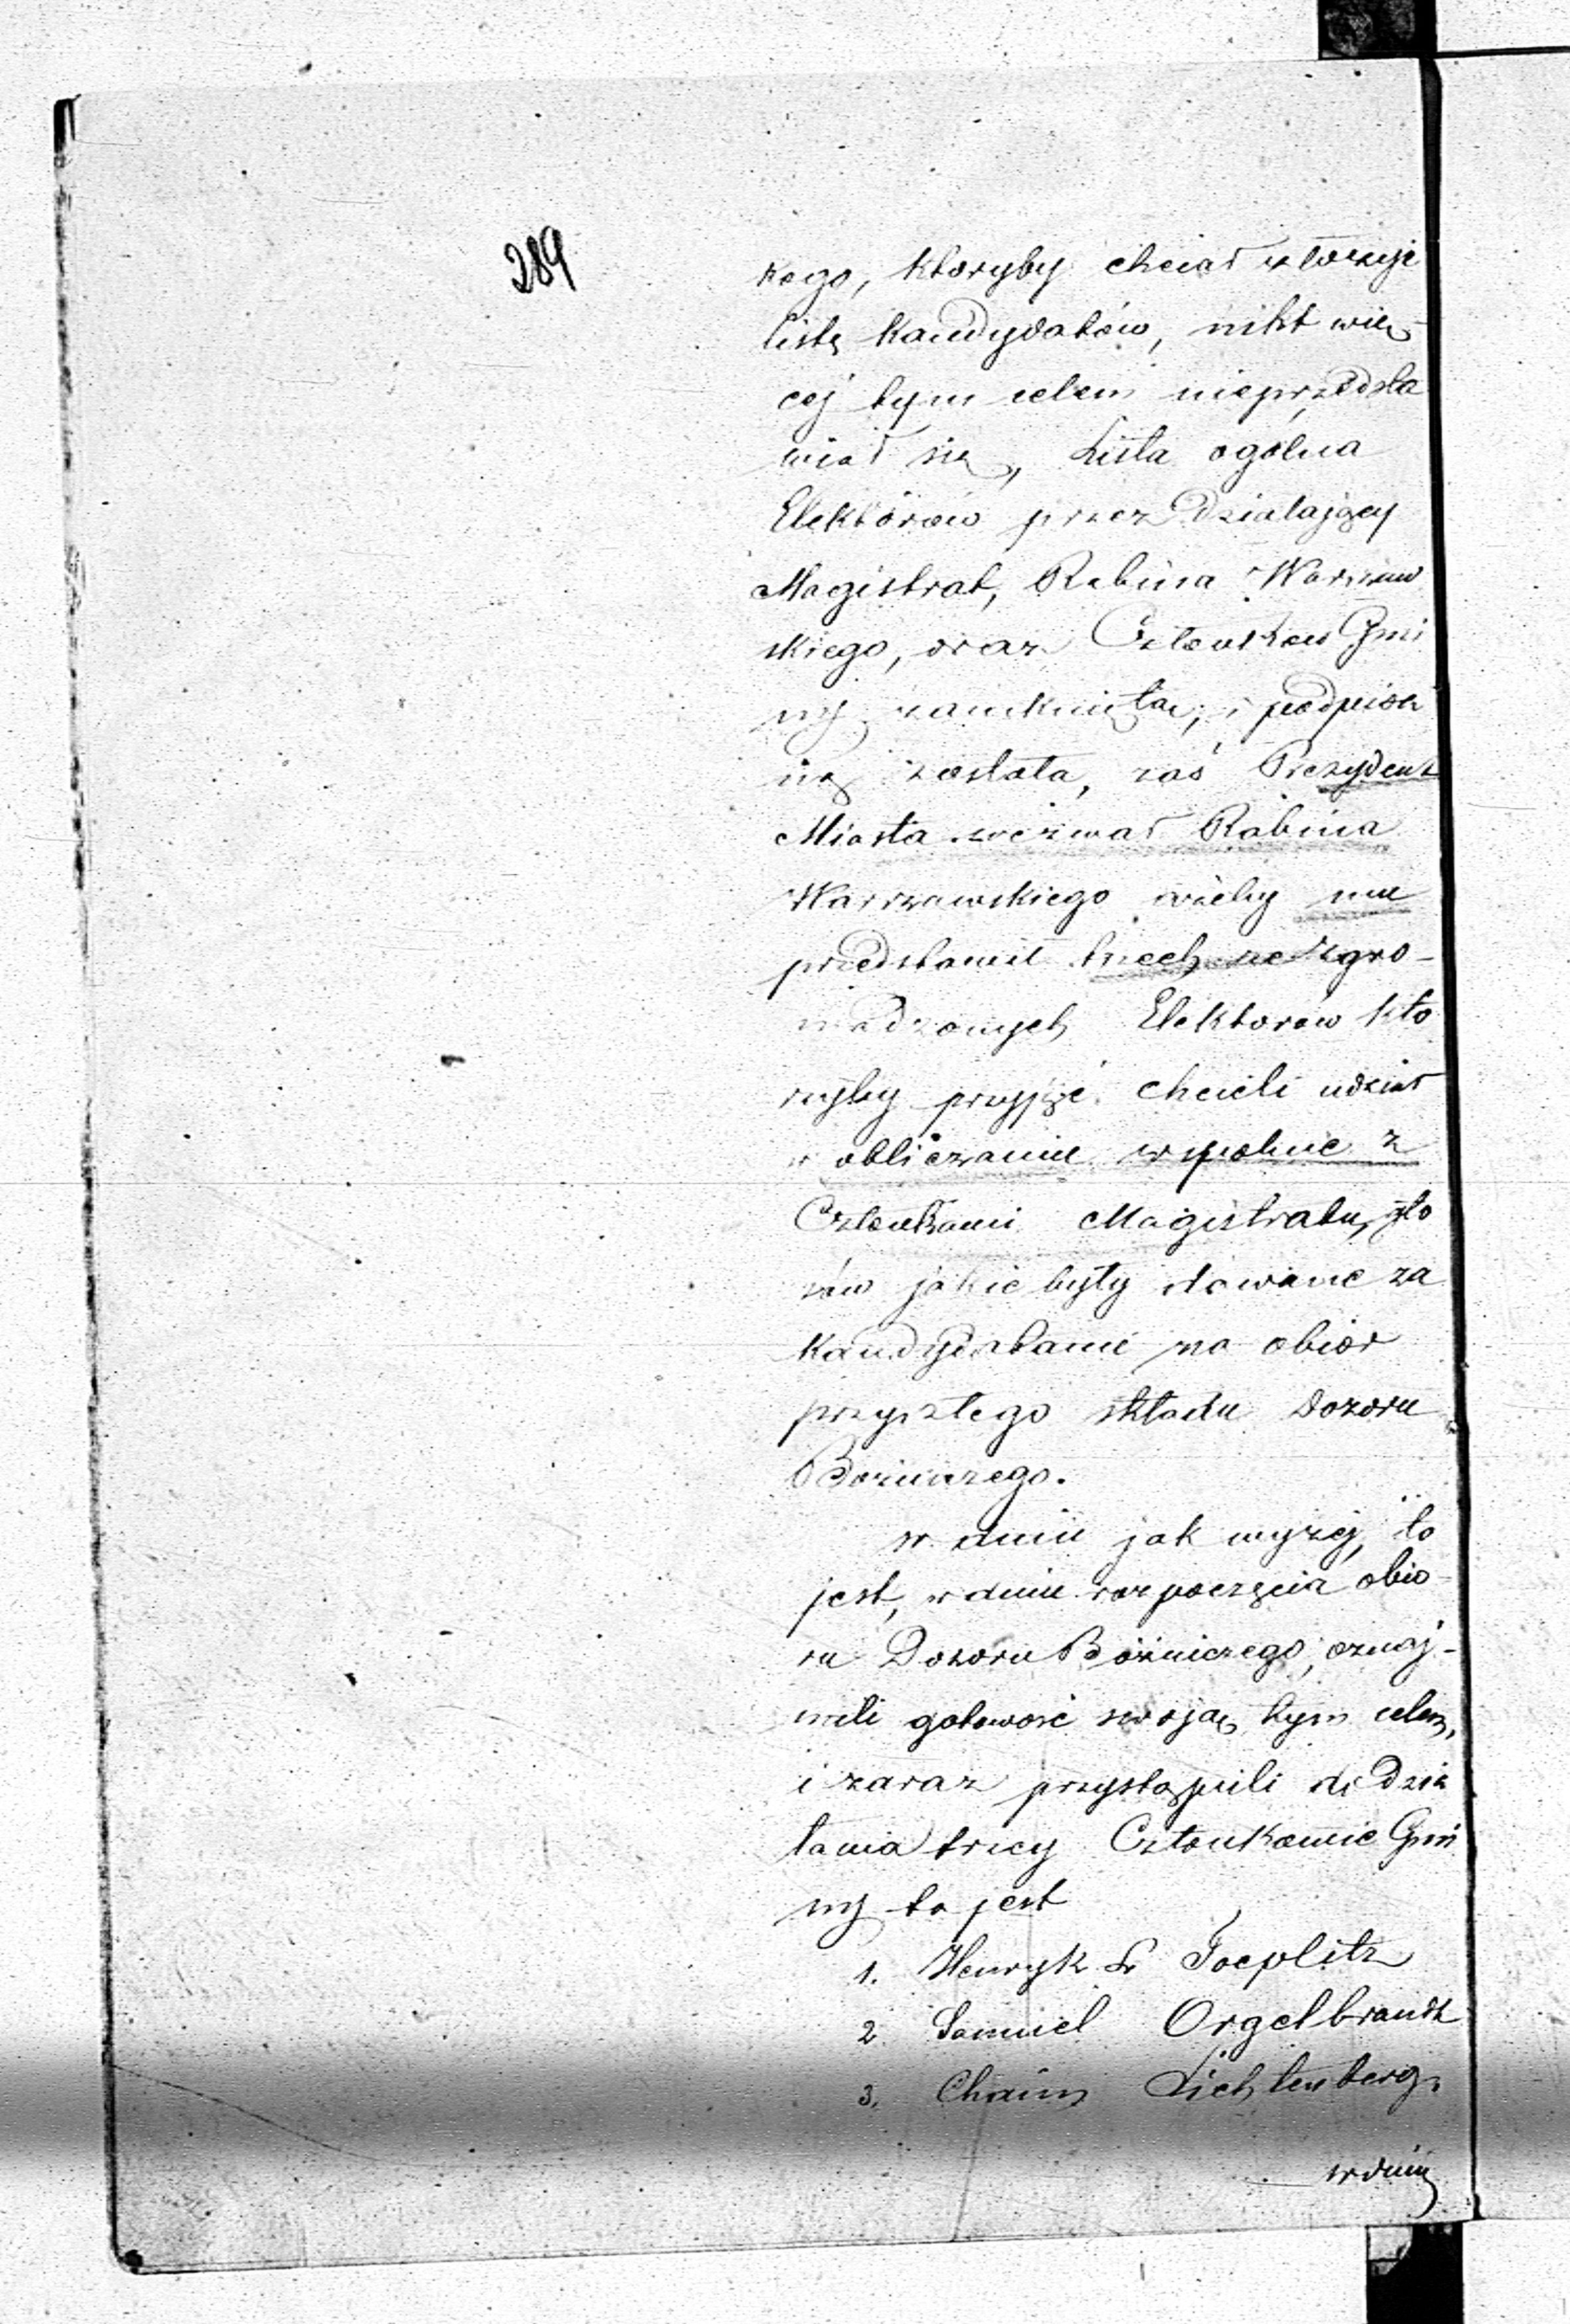 289
kogo, ktoryby chciał złożyć
listę Kandydatów, nikt wię-
cej tym celem nieprzedsta
wiał się, Lista ogólna
Elektórów przez Działający
Magistrat, Rabina Warszaw
skiego, oraz Członków Gmi
ny zamknięta, i podpisa
ną została, zaś Prezydent
Miasta wezwał Rabina
Warszawskiego ażeby mu
przedstawił trzech ze zgro-
madzonych Elektorów kto
ryby przyjąć chcieli udział
w obliczaniu wspolnie z
Członkami Magistratu, gło
sów jakie były dawane za
Kandydatami na obiór
przyszłego składu Dozoru
Bożniczego.
w dniu jak wyżej, to
jest, w dniu rozpoczęcia obio-
ru Dozoru Bóżniczego, oznaj-
mili gotowość swoją tym celem,
i zaraz przystąpili do Dzia
łania trzej Członkowie Gmi
ny to jest
1. Henryk Toeplitz
2 Samuel Orgelbrandt
3. Chaim Lichtenberg.
w dniu